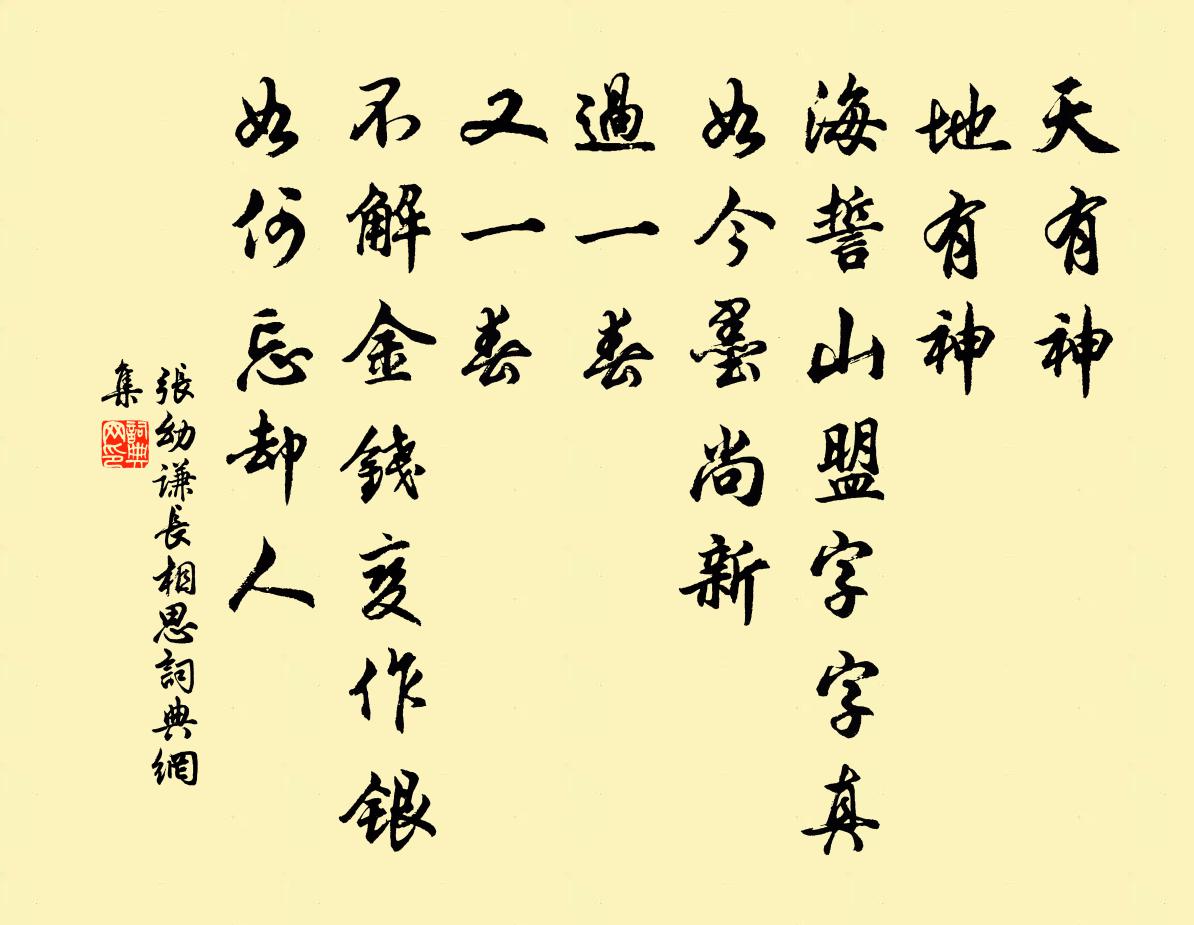 天有神
地有神
海誓山盟字字真
如今墨尚新
過一春
又一春
不解金錢變作銀
如何忘却人
張幼謙長相思詞典網
集
詞典
网印